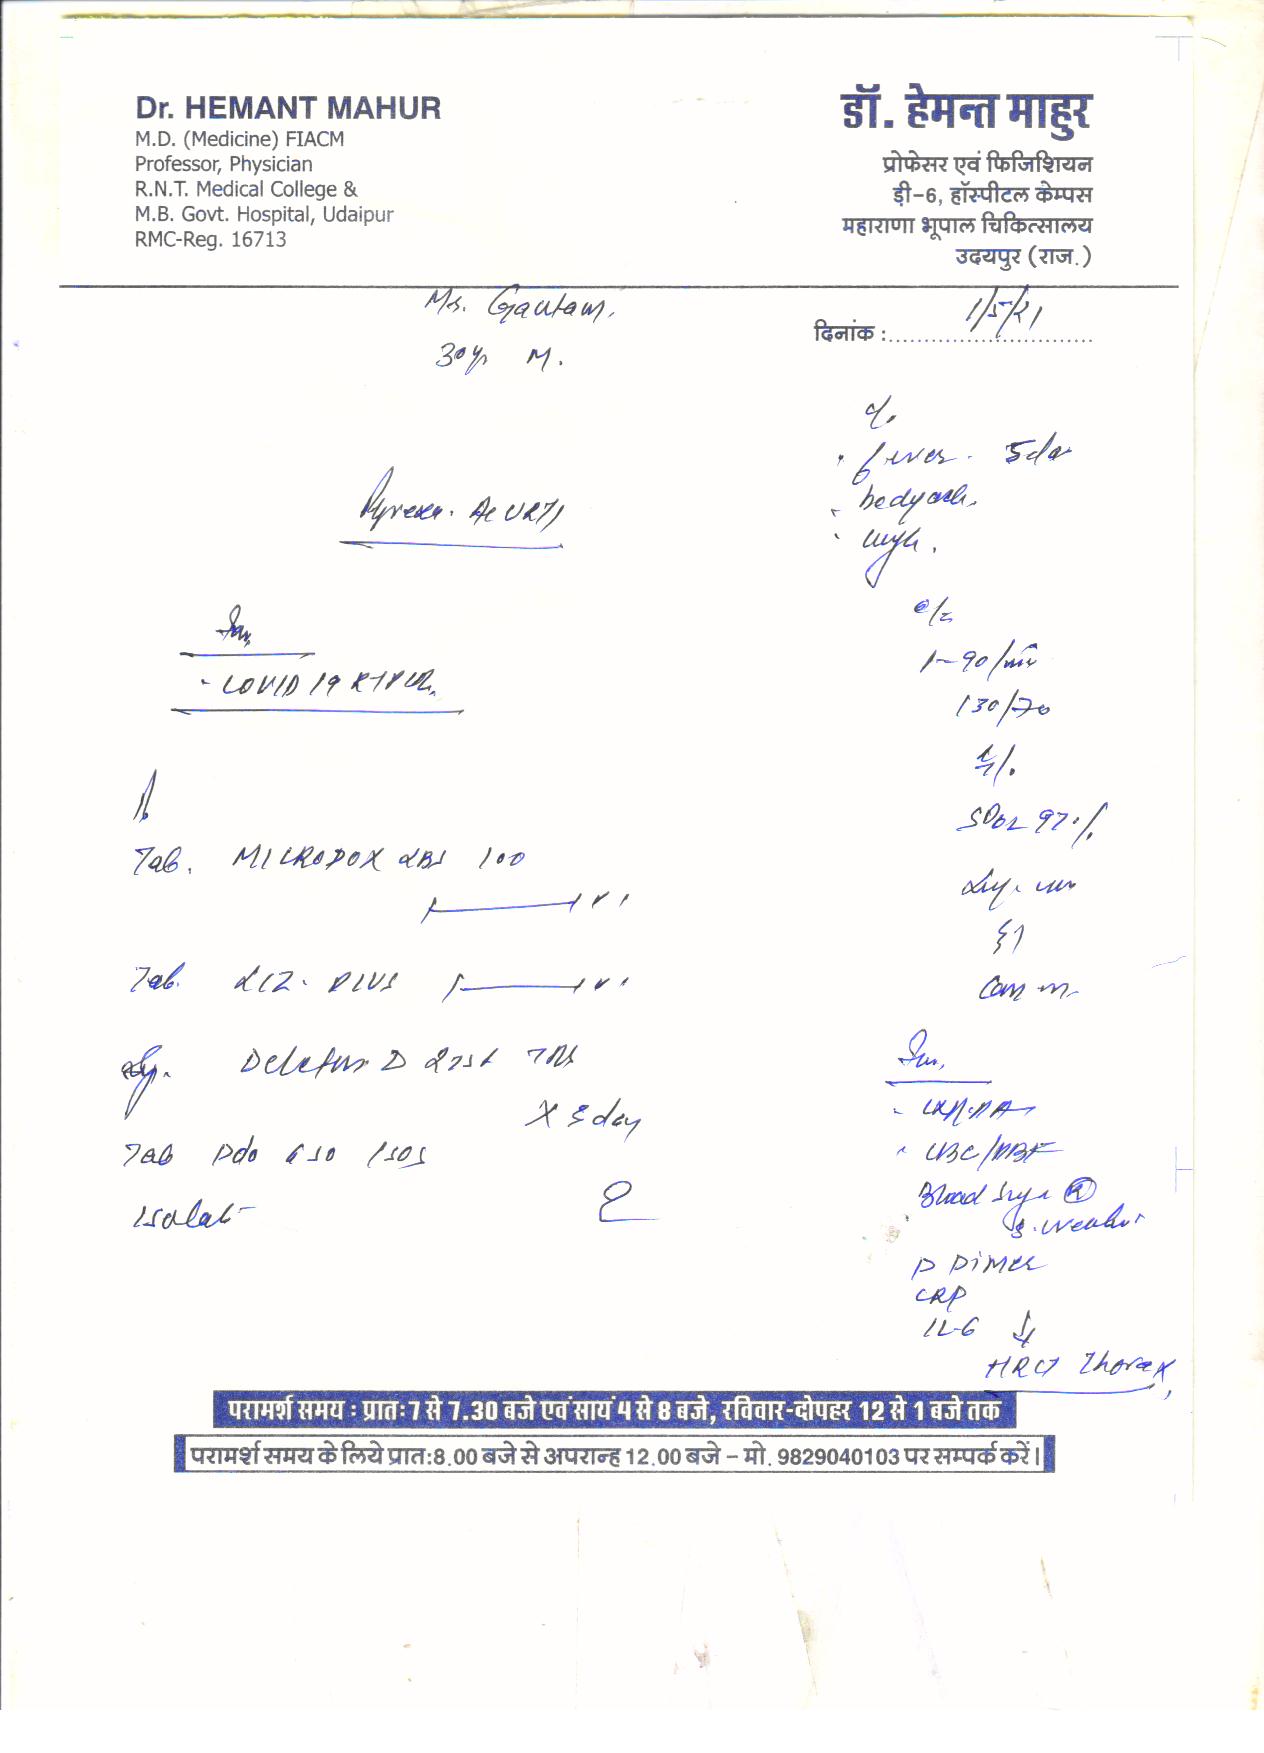 Dr. HEMANT MAHUR
M.D. (Medicine) FIACM
Professor, Physician
R.N.T. Medical College &
M.B. Govt. Hospital, Udaipur
RMC-Reg. 16713
डॉ. हेमन्त माहुर
प्रोफेसर एवं फिजिशियन
ड़ी-6, हॉस्पीटल केम्पस
महाराणा भूपाल चिकित्सालय
उदयपुर (राज.)
Mr. Gautam.
30yr M.
दिनांक : 1/5/21
c/o
fever - 5da
bodyach
Ac URTI
- COVID 19 RTPCR
90/min
130/70
SPO2 97%
Tab. MICRODOX LBX 100
Tab. LCZ - PLUS
Sy. D 2tsf TDS
X 5 day
Tab Pdo 650 1SOS
Isolat
CBC/PBF
Blood Suga (R)
D Dimer
CRP
IL-6
HRCT Thorax
परामर्श समय : प्रातः7 से 7.30 बजे एवं सायं 4 से 8 बजे, रविवार-दोपहर 12 से 1 बजे तक
परामर्श समय के लिये प्रात:8.00 बजे से अपरान्ह 12.00 बजे – मो. 9829040103 पर सम्पर्क करें।